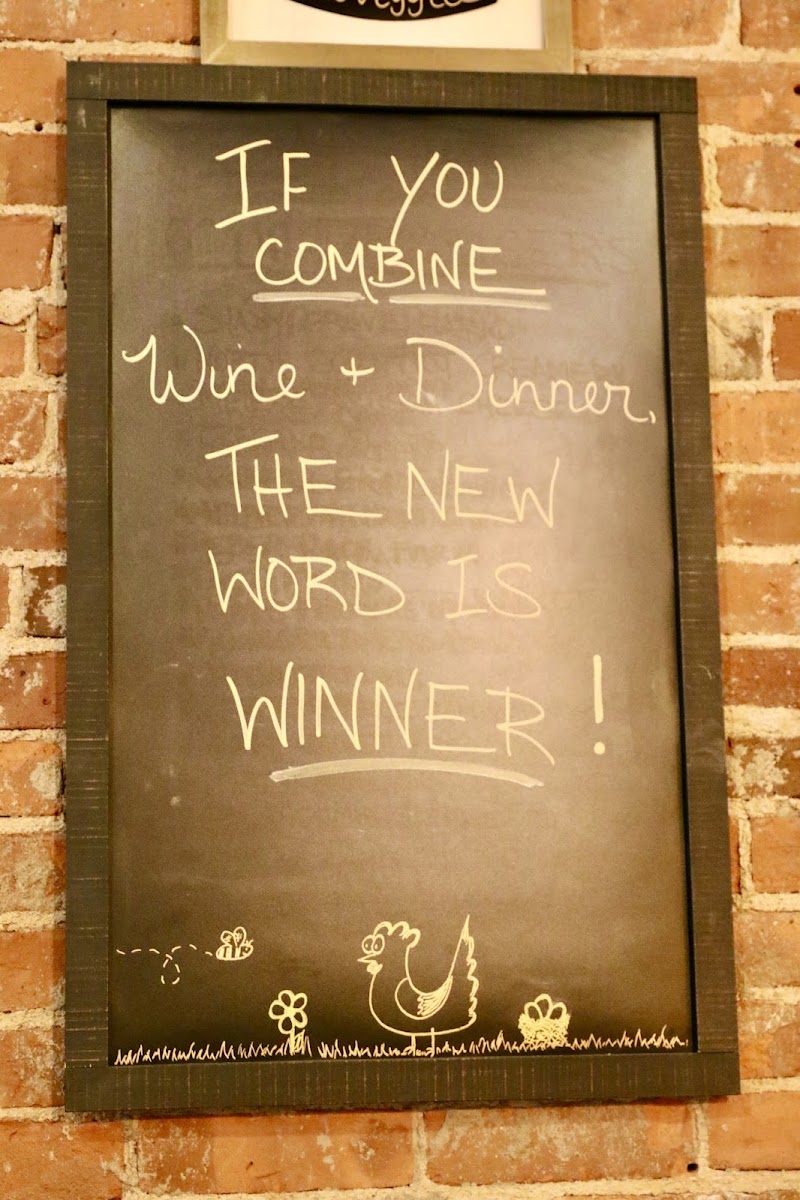 IF YOU
COMBINE
Wine + Dinner,
THE NEW
WORD IS
WINNER!